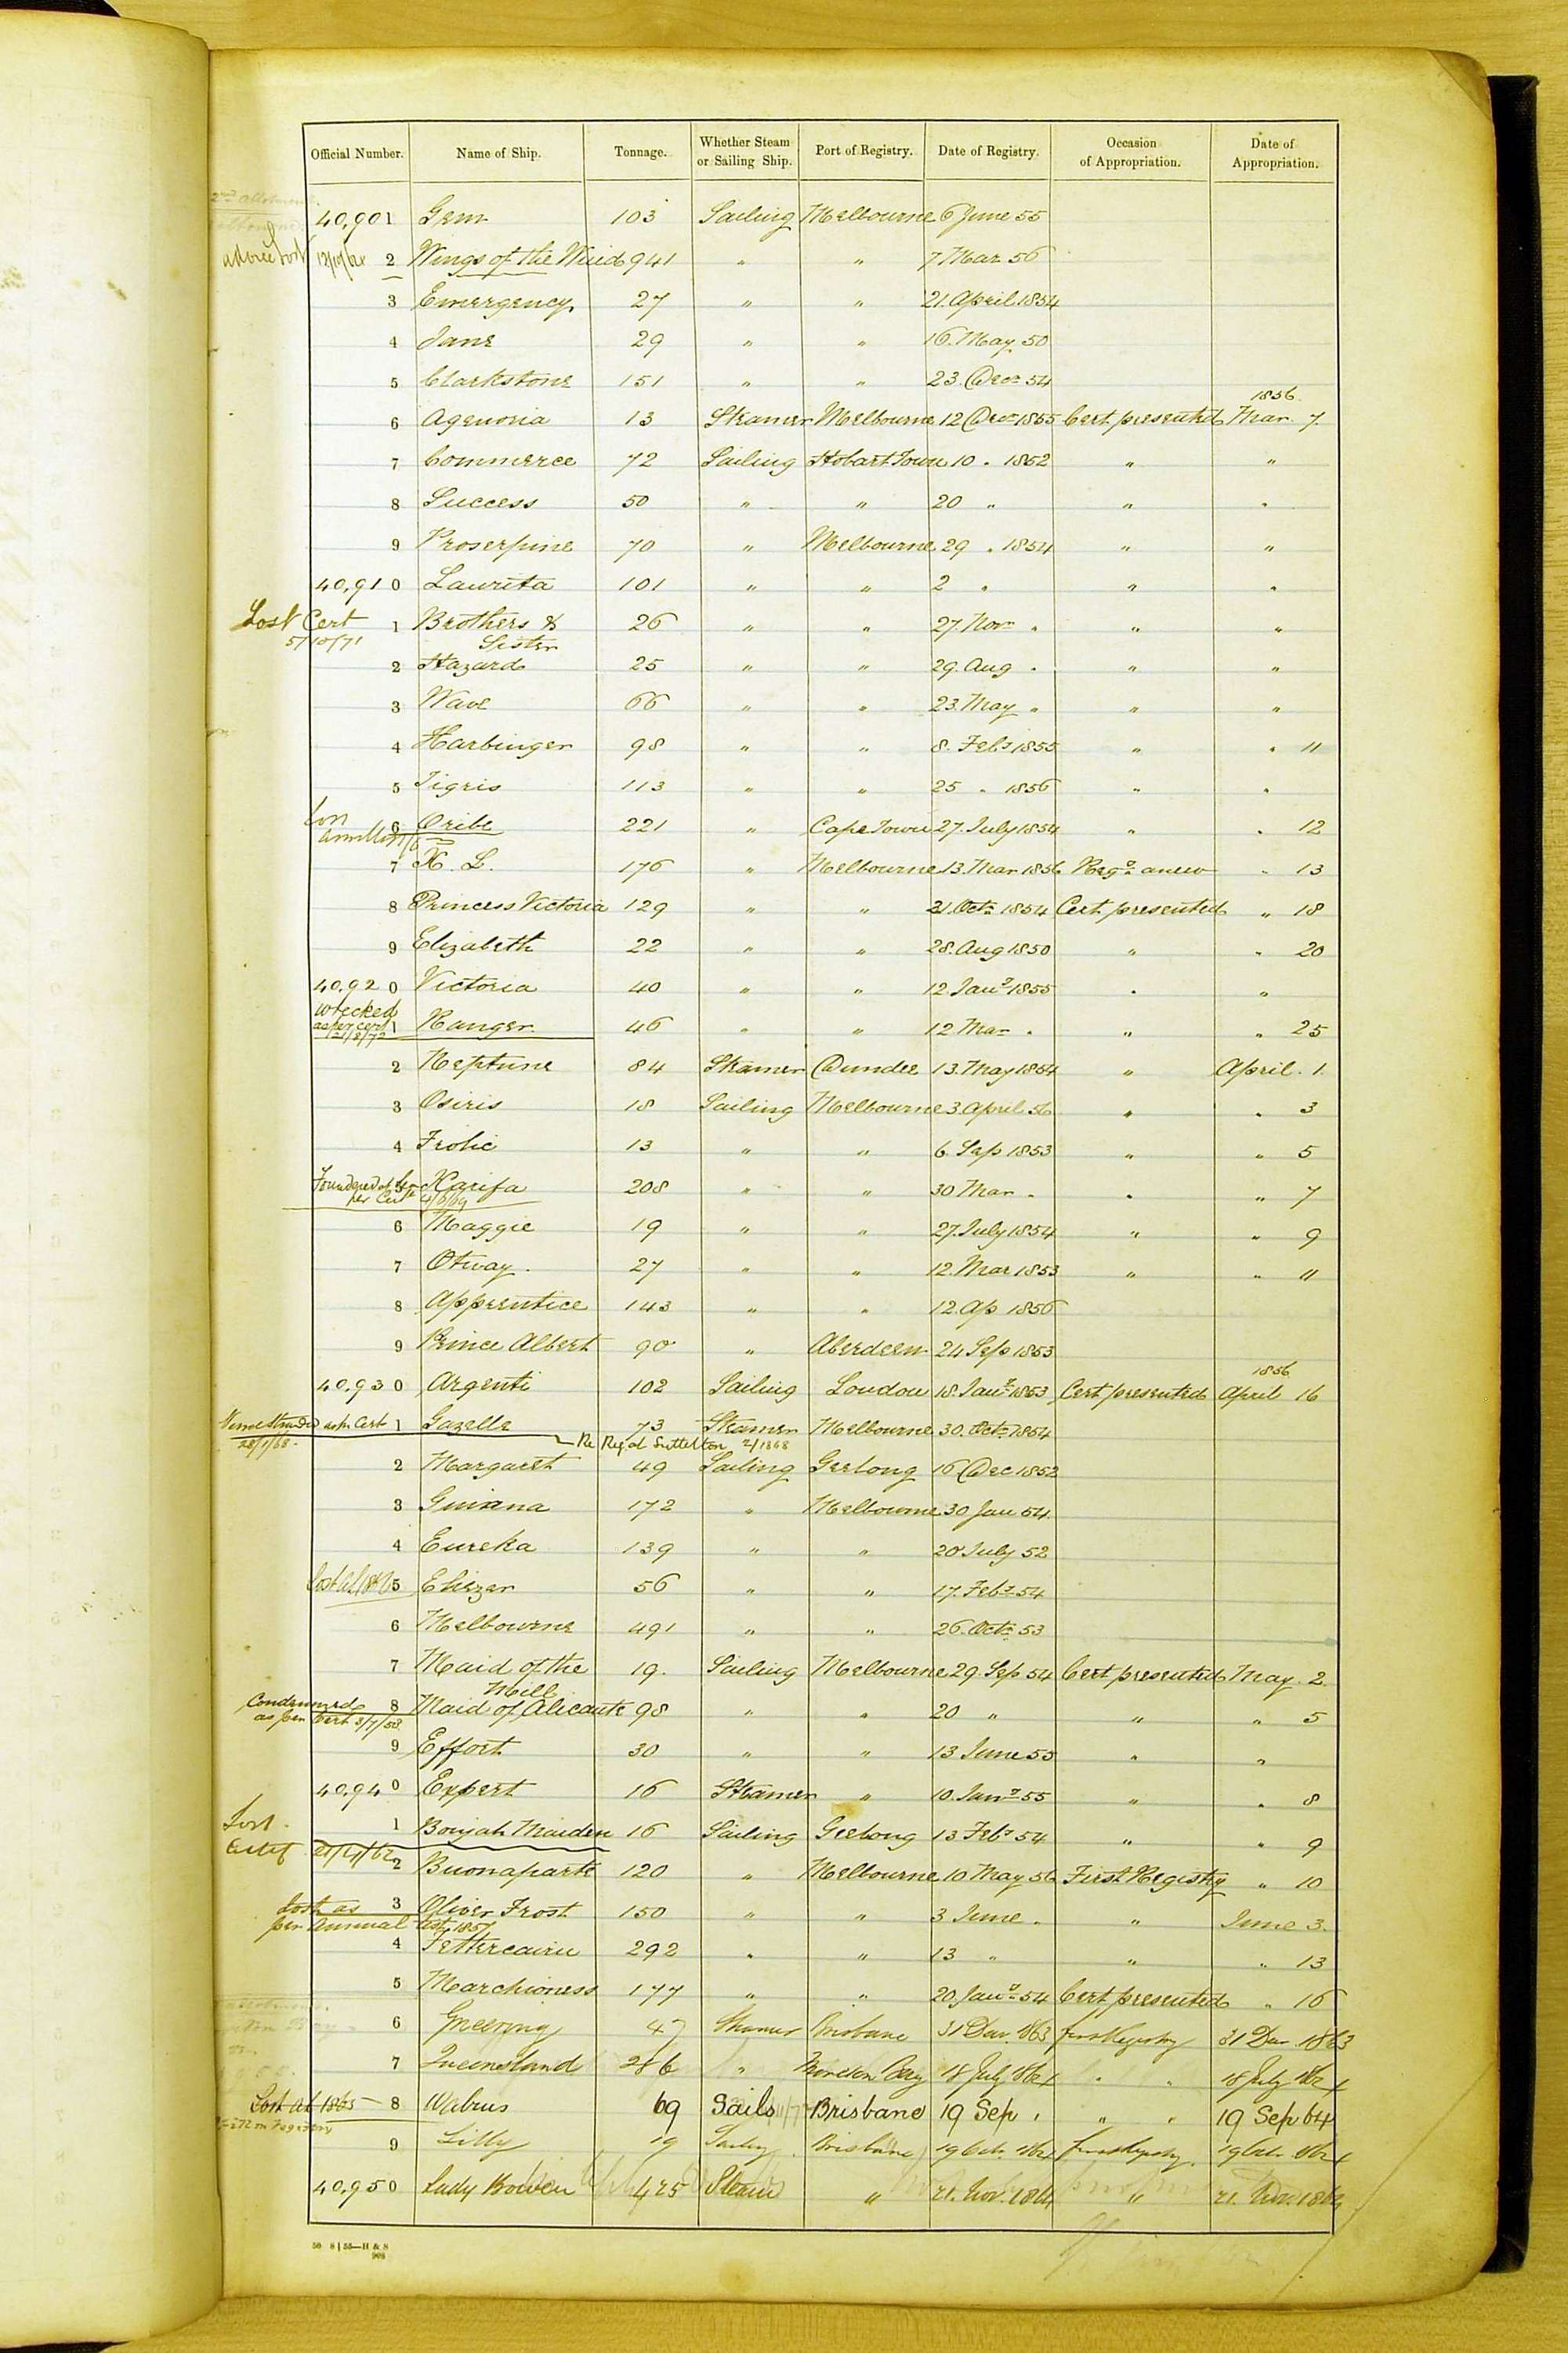 Official Number. Name of Ship. Tonnage. Whether Steam or Sailing Ship. Port of Registry. Date of Registry. Occasion of Appropriation. Date of Appropriation.
40,901 Gem 103 Sailing Melbourne 6 June 55
2 Wings of the Wind 941 " " 7 Mar 56
3 Emergency 27 " " 21. April 1854
4 Jane 29 " " 16. May. 50
5 Clarkstone 151 " " 23. Decr 54
1856.
6 Agenoria 13 Steamer Melbourne 12 Decr 1855 Cert presented Mar. 7.
7 Commerce 72 Sailing Hobart Town 10 " 1852 " "
8 Success 50 " " 20 " " "
9 Proserpine 70 " Melbourne 29 " 1854 " "
40,910 Laurita 101 " " 2 " " "
Lost Cert 1 Brothers & 26 " " 27. Novr " " "
5/10/71 Sister
2 Hazard 25 " " 29. Aug " " "
3 Wave 66 " " 23. May " " "
4 Harbinger 98 " " 8. Feby 1855 " " 11
5 Tigris 113 " " 25 " 1856 " "
6 Oribe 221 " Cape Town 27. July 1854 " " 12
7 K. L. 176 " Melbourne 13. Mar 1856 Regd anew " 13
8 Princess Victoria 129 " " 21. Octr 1854 Cert presented " 18
9 Elizabeth 22 " " 28. Aug 1850 " " 20
40,920 Victoria 40 " " 12. Jany 1855 " "
Wrecked
as per cert 1 Ranger 46 " " 12 Mar " " " 25
21/8/72
2 Neptune 84 Steamer Dundee 13. May 1854 " April. 1.
3 Osiris 18 Sailing Melbourne 3. April. 56 " " 3
4 Frolic 13 " " 6. Sep 1853 " " 5
Foundered at Sea Karifa 208 " " 30 Mar " " " 7
per Cert 4/6/69
6 Maggie 19 " " 27. July 1854 " " 9
7 Otway. 27 " " 12. Mar 1853 " " 11
8 Apprentice 143 " " 12. Ap 1856
9 Prince Albert 90 " Aberdeen 24 Sep 1853
1856
40,930 Argenti 102 Sailing London 18. Jany 1853 Cert presented April 16
1 Gazelle 73 Steamer Melbourne 30. Octr 1854
28/1/68. Re Reg. at Lyttelton 2/1868
2 Margaret 49 Sailing Geelong 16 Dec 1852
3 Guiana 172 " Melbourne 30 Jan 54
4 Eureka 139 " " 20 July 52
5 Eliezer 56 " " 17. Feby 54
6 Melbourne 491 " " 26. Octr 53
7 Maid of the 19. Sailing Melbourne 29. Sep 54 Cert presented May. 2.
Mill
Condemned 8 Maid of Alicante 98 " " 20 " " " 5
as per Cert 3/7/58
9 Effort 30 " " 13 June 55 " "
40,940 Expert 16 Steamer " 10. Jany 55 " " 8
Lost.
1 Bonjah Maiden 16 Sailing Geelong 13 Feby 54 " " 9
2 Buonaparte 120 " Melbourne 10 May 56 First Registry " 10
Lost as 3 Oliver Frost 150 " " 3 June " " June 3.
per Annual List 1857
4 Fettercairn 292 " " 13 " " " 13
5 Marchioness 177 " " 20. Jany 54 Cert presented " 16
6 47 Steamer Brisbane 31 Dec. 1863 first Registry 31 Dec 1863
7 Queensland 286 " Moreton Bay 18 July 1864 " " 18 July 1864
Lost at 1865 - 8 Walrus 69 Sails Brisbane 19 Sep " " " 19 Sep 64
9 Lilly 19 Sailing Brisbane 19 Oct. 1864 first Registry. 19 Oct. 1864
40,950 Lady Bowen 425 Steam " 21. Nov. 1864 " 21. Nov. 1864
50 8|55—H & S
908